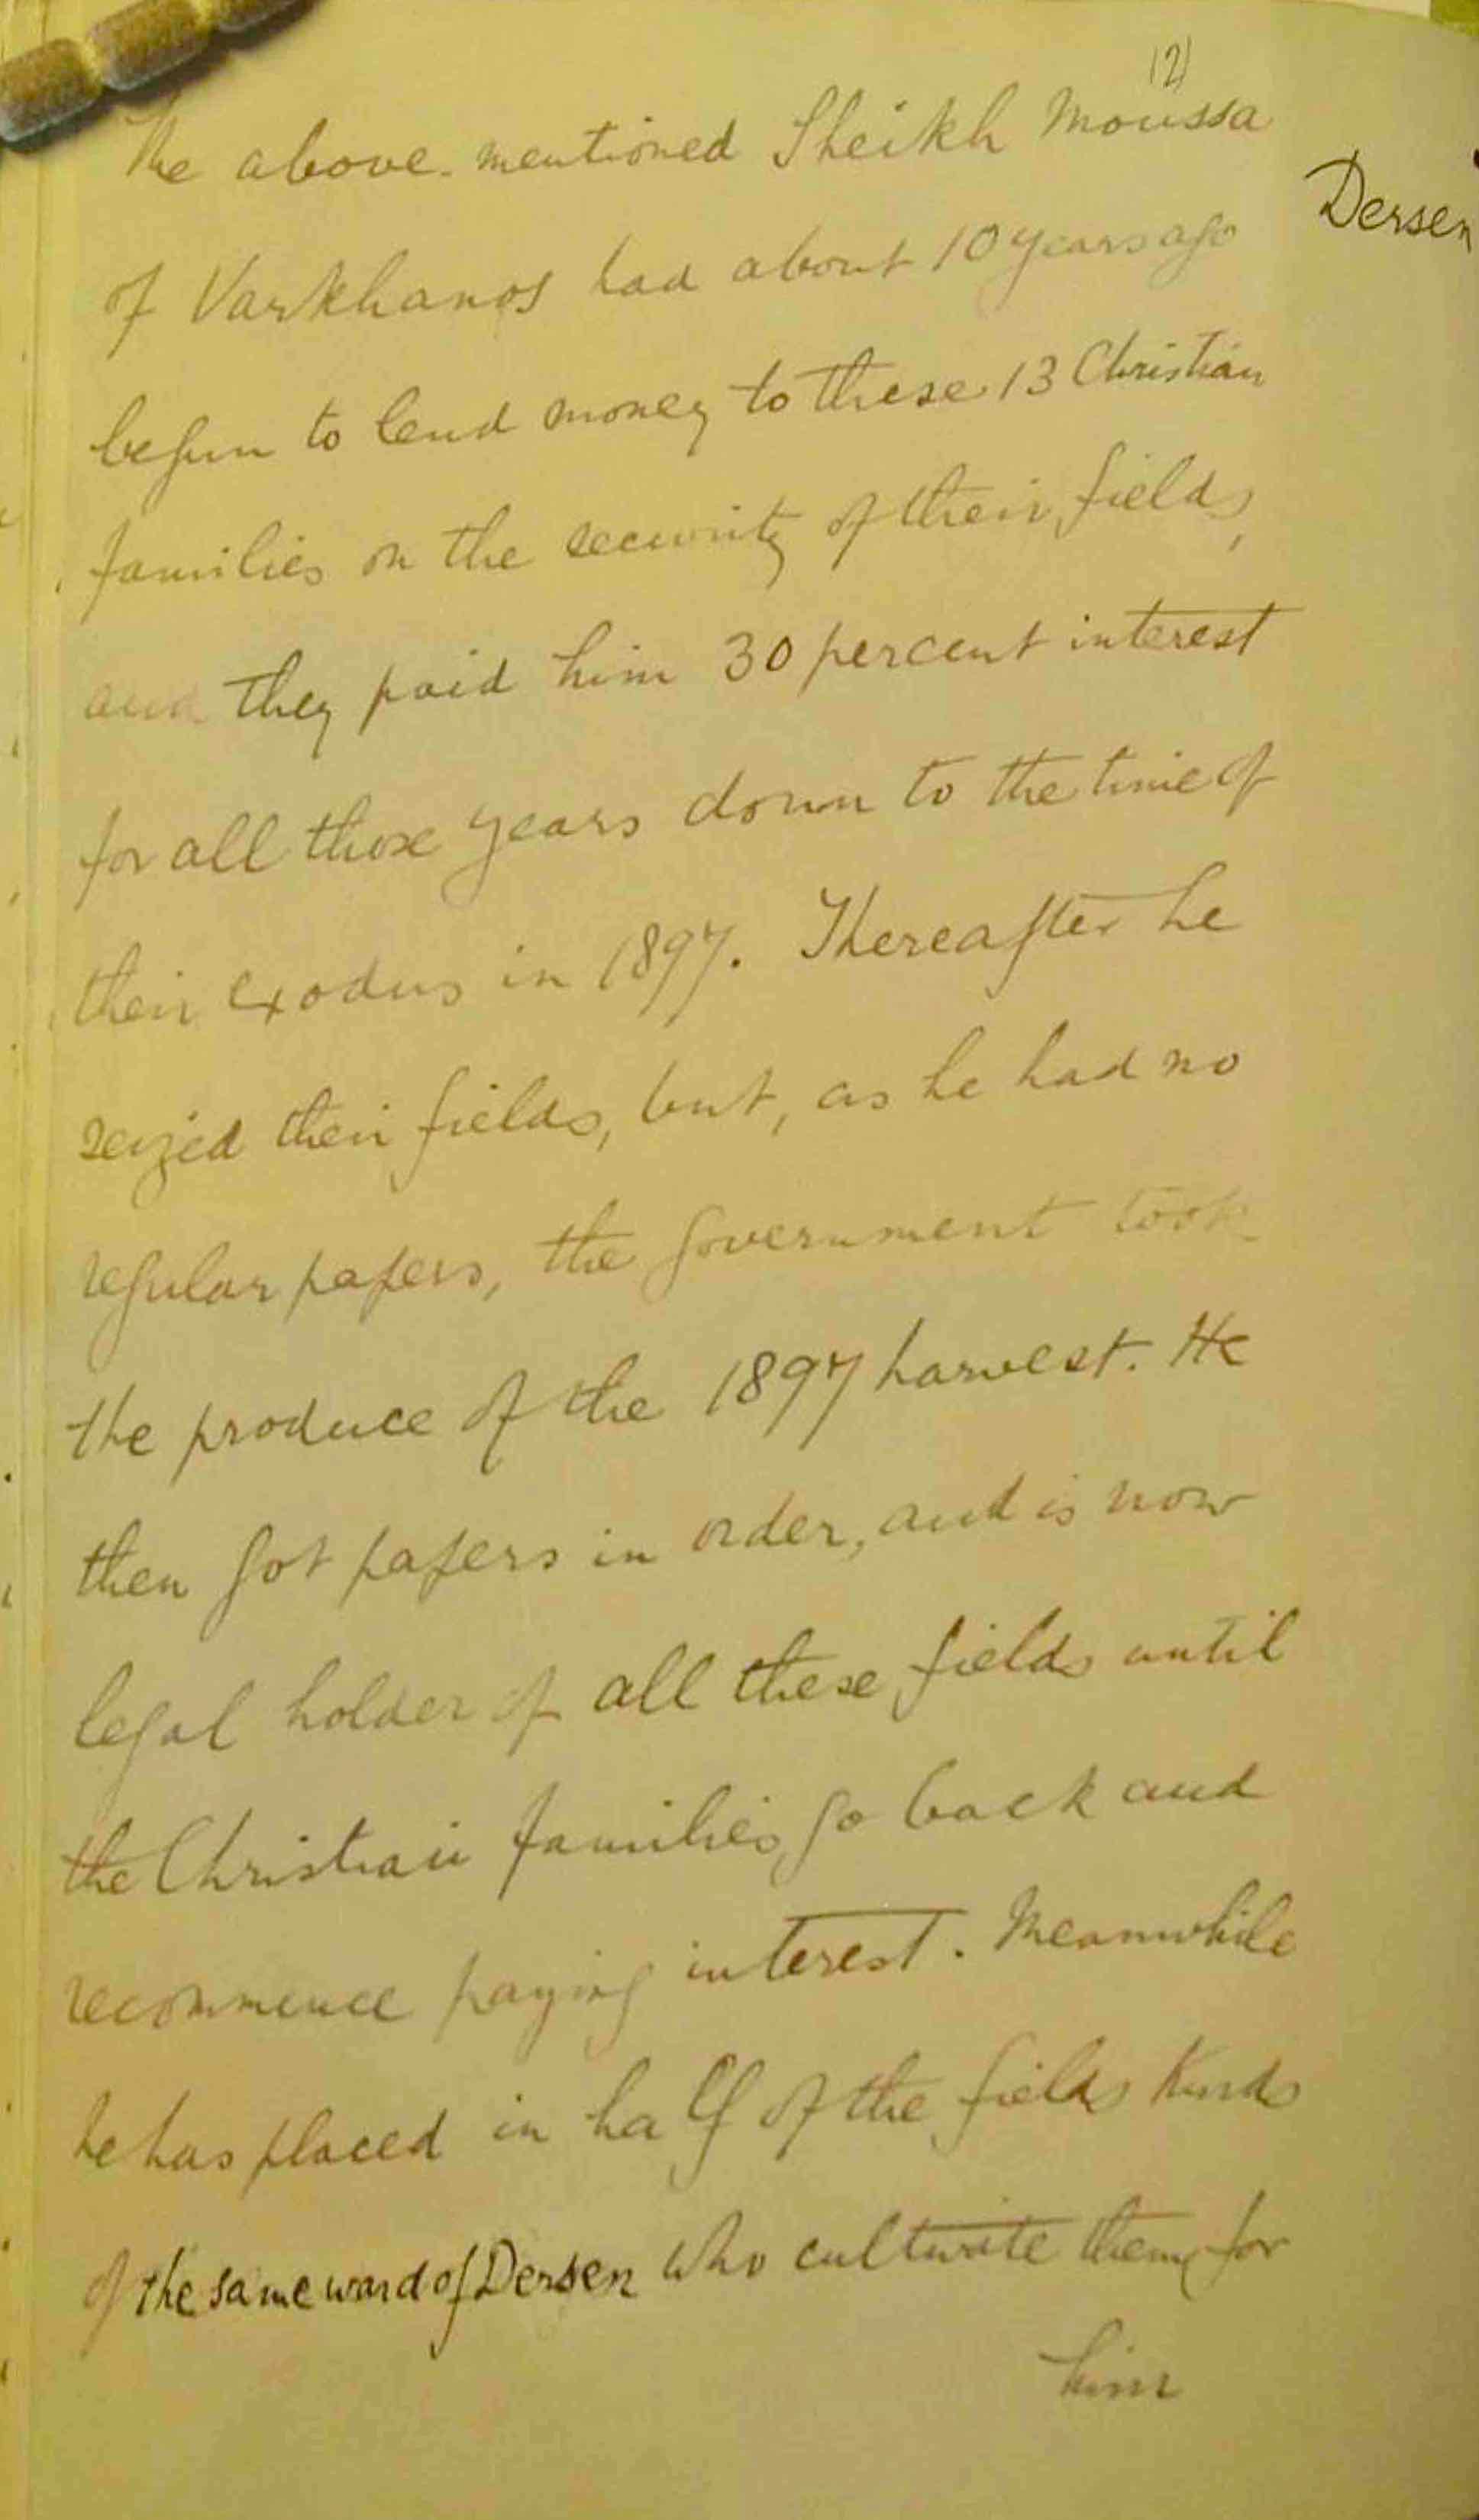 12)
The above-mentioned Sheikh Moussa
Dersen
of Varkhanos had about 10 years ago
begun to lend money to these 13 Christian
families on the security of their fields,
and they paid him 30 percent interest
for all those years down to the time of
their exodus in 1897. Thereafter he
seized their fields, but, as he had no
regular papers, the government took
the produce of the 1897 harvest. He
then got papers in order, and is now
legal holder of all these fields until
the Christian families go back and
recommence paying interest. Meanwhile
he has placed in half of the fields Kurds
of the same ward of Dersen who cultivate them for
him